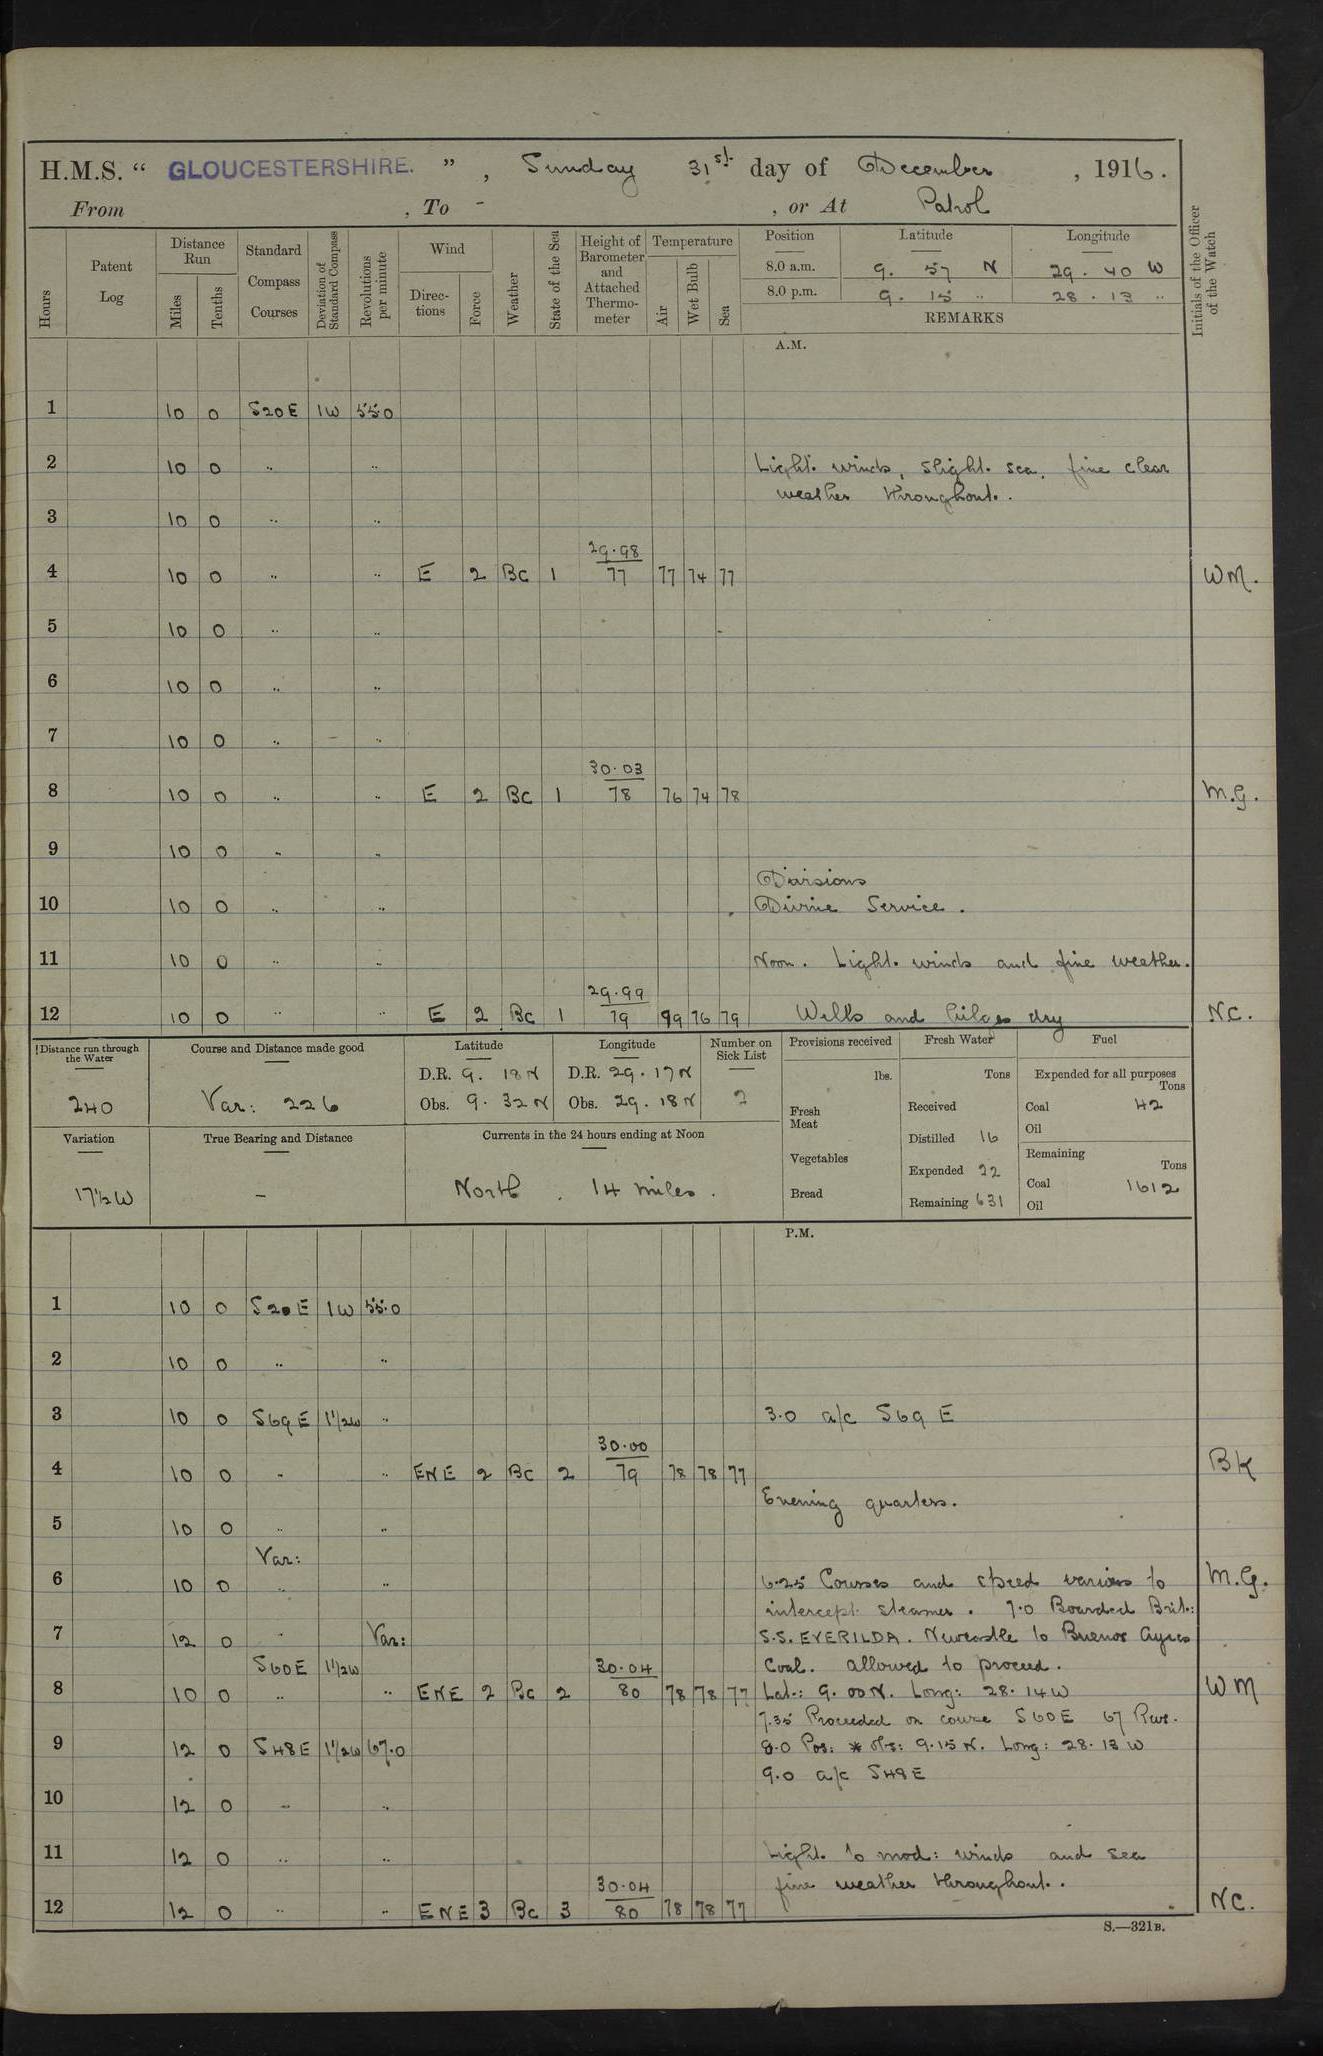 H.M.S. “ GLOUCESTERSHIRE. ” , Sunday 31st day of December , 1916.
From , To - , or At Patrol
Hours
Patent Log
Distance Run
Miles
Tenths
Standard Compass Courses
Deviation of Standard Compass
Revolutions per minute
Wind
Direc-tions
Force
Weather
State of the Sea
Height of Barometer and Attached Thermo-meter
Temperature
Air
Wet Bulb
Sea
Position Latitude Longitude
8.0 a.m. 9. 57 N 29. 40 W
8.0 p.m. 9. 15 " 28. 13 "
REMARKS
Initials of the Officer of the Watch
A.M.
1 10 0 S20E 1W 55.0
2 10 0 " " Light winds, slight sea, fine clear
weather throughout.
3 10 0 " "
29.98
4 10 0 " " E 2 BC 1 77 77 74 77 WM.
5 10 0 " "
6 10 0 " "
7 10 0 " "
30.03
8 10 0 " " E 2 BC 1 78 76 74 78 M.G.
9 10 0 " "
Divisions
10 10 0 " " Divine Service.
11 10 0 " " Noon. Light winds and fine weather.
29.99
12 10 0 " " E 2 BC 1 79 79 76 79 Wells and bilges dry NC.
Distance run through the Water
240
Course and Distance made good
Var: 226
Latitude
D.R. 9. 18 N
Obs. 9. 32 N
Longitude
D.R. 29. 17 N
Obs. 29. 18 N
Number on Sick List
2
Variation
17½W
True Bearing and Distance
-
Currents in the 24 hours ending at Noon
North . 14 miles.
Provisions received
lbs.
Fresh Meat
Vegetables
Bread
Fresh Water
Tons
Received
Distilled 16
Expended 22
Remaining 631
Fuel
Expended for all purposes
Tons
Coal 42
Oil
Remaining
Tons
Coal 1612
Oil
P.M.
1 10 0 S20E 1W 55.0
2 10 0 " "
3 10 0 S69E 1½W " 3.0 a/c S69E
30.00
4 10 0 " " ENE 2 BC 2 79 78 78 77 BK
Evening quarters.
5 10 0 " "
Var:
6 10 0 " " 6.25 Courses and speed various to M.G.
intercept steamer. 7.0 Boarded Brit:
7 12 0 " Var: S.S. EVERILDA. Newcastle to Buenos Ayres
S60E 1½W 30.04 Coal. allowed to proceed.
8 10 0 " " ENE 2 BC 2 80 78 78 77 Lat: 9. 00N. Long: 28. 14W WM
7.35 Proceeded on course S60E 67 Revs.
9 12 0 S48E 1½W 67.0 8.0 Pos: * obs: 9.15 N. Long: 28. 13 W
9.0 a/c S48E
10 12 0 " "
11 12 0 " " Light to mod: winds and sea
30.04 fine weather throughout.
12 12 0 " " ENE 3 BC 3 80 78 78 77 NC.
S.—321B.